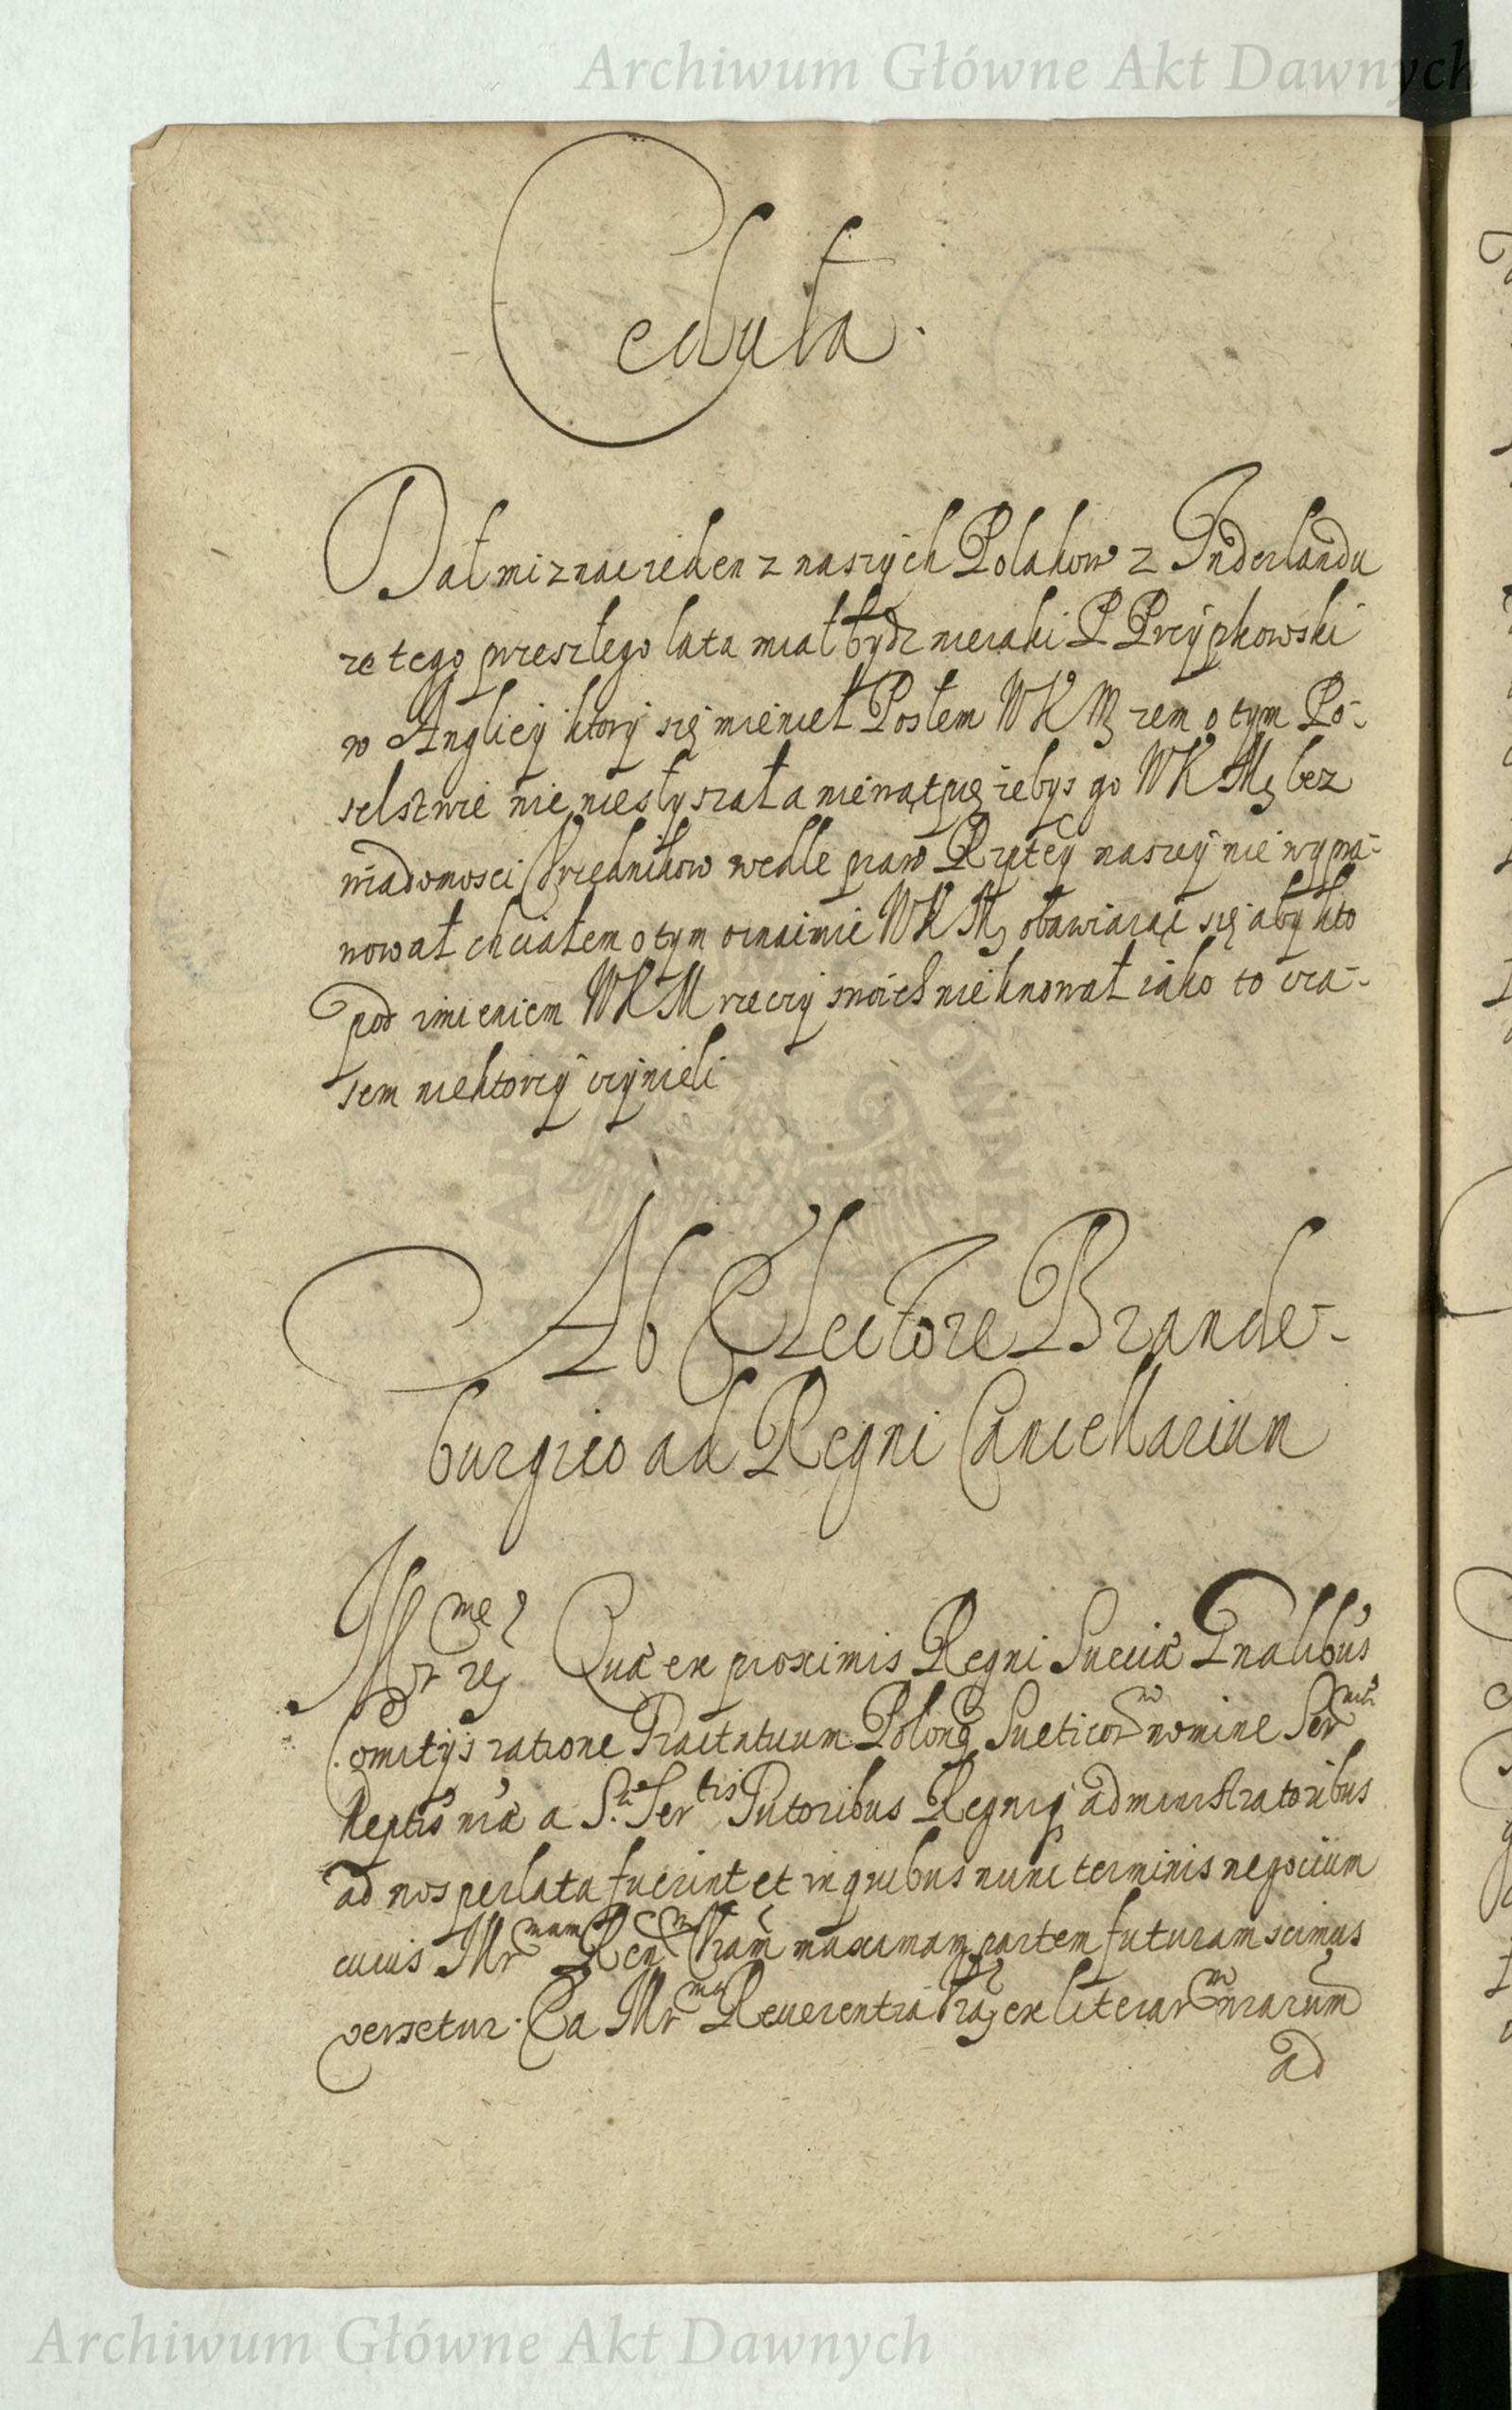 Archiwum Główne Akt Dawnych
Ceduła.
Dał mi znac ieden z naszÿch Polakow z Inderlandu
ze tego przeszłego lata miał bydz nieiaki P Przÿpkowski
w Angliey ktorÿ się mienieł Posłem WKM zem o tym Po-
selstwie nie niesłyszał a niewątpię zebys go WKM bez
wiadomosci Urzednikow wedle praw Rzpteÿ naszeÿ nie wypra-
wował chciałem o tym oznaimic WKM obawiaiąc się aby kto
pod imieniem WKM rzeczÿ swoich nie knował iako to cza-
sem niektorzÿ czÿnieli
Ab Electore Brande-
burgico ad Regni Cancellarium
Quæ ex proximis Regni Sueciæ Gnalibus
Comitÿs ratione Tractatuum Polonoq Sueticor nomine Ser
Reptis nræ a Ser tis Tutoribus Regniq administratoribus
ad nos perlata fuerint et in quibus nunc terminis negocium
cuius Mr mam Ren Vram maximam partem futuram scimus
versetur. Ea Mr ma Reuerentia Vra ex literar nrarum
ad
Archiwum Główne Akt Dawnych